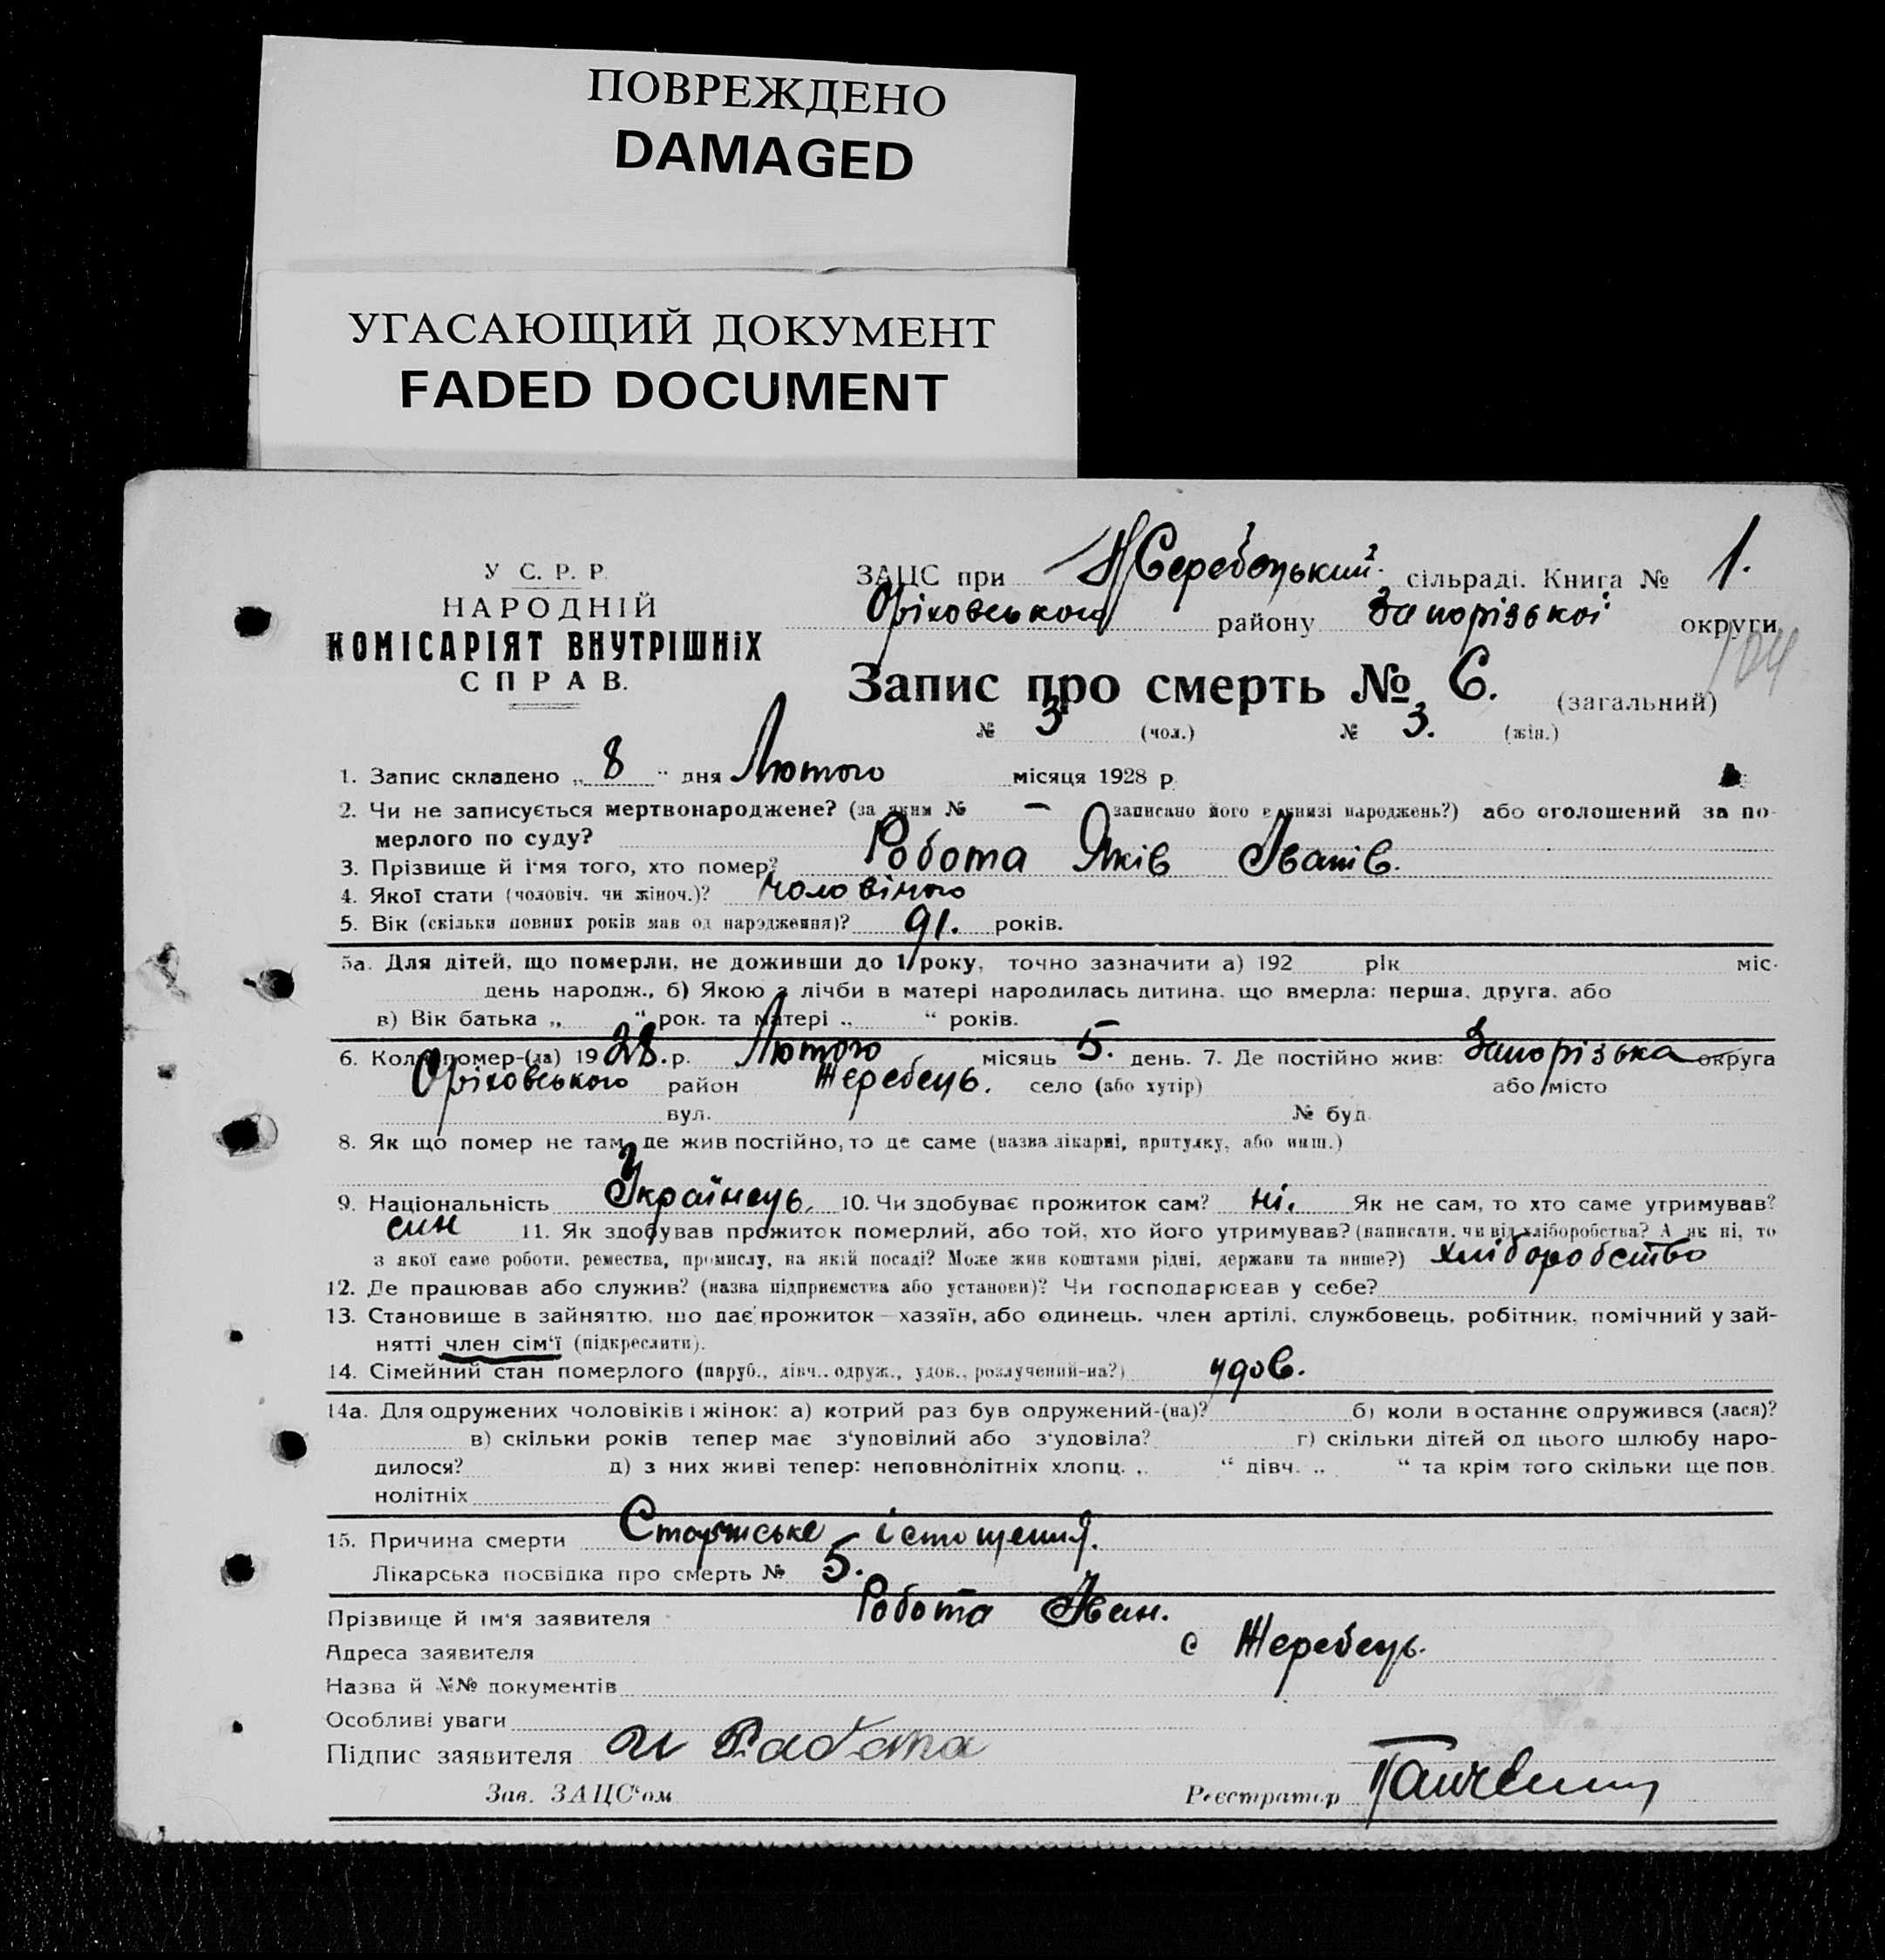 ПОВРЕЖДЕНО
DAMAGED
УГАСАЮЩИЙ ДОКУМЕНТ
FADED DOCUMENT
У С. Р. Р.
НАРОДНІЙ
КОМІСАРІЯТ ВНУТРІШНІХ
СПРАВ.
ЗАЦС при Жеребецький сільраді. Книга № 1.
Оріховського району Запорізької округи
104
Запис про смерть № 6. (загальний)
№ 3 (чол.) № 3. (жін.)
1. Запис складено „ 8 “ дня Лютого місяця 1928 р.
2. Чи не записується мертвонароджене? (за яким № – записано його в книзі народжень?) або оголошений за по-
мерлого по суду?
3. Прізвище й ім'я того, хто помер? Робота Яків Іванів.
4. Якої стати (чоловіч. чи жіноч.)? чоловічого
5. Вік (скільки повних років мав од народження)? 91. років.
5а. Для дітей, що померли, не доживши до 1 року, точно зазначити а) 192 рік міс.
день народж., б) Якою з лічби в матері народилась дитина, що вмерла: перша, друга, або
в) Вік батька „ “ рок. та матері „ “ років.
6. Коли помер-(ла) 1928. р. Лютого місяць 5. день. 7. Де постійно жив: Запорізька округа
Оріховського район Жеребець. село (або хутір) або місто
вул. № буд.
8. Як що помер не там, де жив постійно, то де саме (назва лікарні, притулку, або инш.)
9. Національність Українець. 10. Чи здобуває прожиток сам? ні. Як не сам, то хто саме утримував?
син 11. Як здобував прожиток померлий, або той, хто його утримував? (написати, чи від хліборобства? А як ні, то
з якої саме роботи, ремества, промислу, на якій посаді? Може жив коштами рідні, держави та инше?) хліборобство
12. Де працював або служив? (назва підприємства або установи)? Чи господарював у себе?
13. Становище в зайняттю, що дає прожиток—хазяїн, або одинець, член артілі, службовець, робітник, помічний у зай-
нятті член сім'ї (підкреслити).
14. Сімейний стан померлого (паруб., дівч., одруж., удов., розлучений-на?) удов.
14а. Для одружених чоловіків і жінок: а) котрий раз був одружений-(на)? б) коли востаннє одружився (лася)?
в) скільки років тепер має з'удовілий або з'удовіла? г) скільки дітей од цього шлюбу наро-
дилося? д) з них живі тепер: неповнолітніх хлопц. „ “ дівч. „ “ та крім того скільки ще пов.
нолітніх
15. Причина смерти істощения.
Лікарська посвідка про смерть № 5.
Прізвище й ім'я заявителя Робота Іван.
Адреса заявителя с Жеребець.
Назва й №№ документів
Особливі уваги
Підпис заявителя И Работа
Зав. ЗАЦС'ом Реєстратор